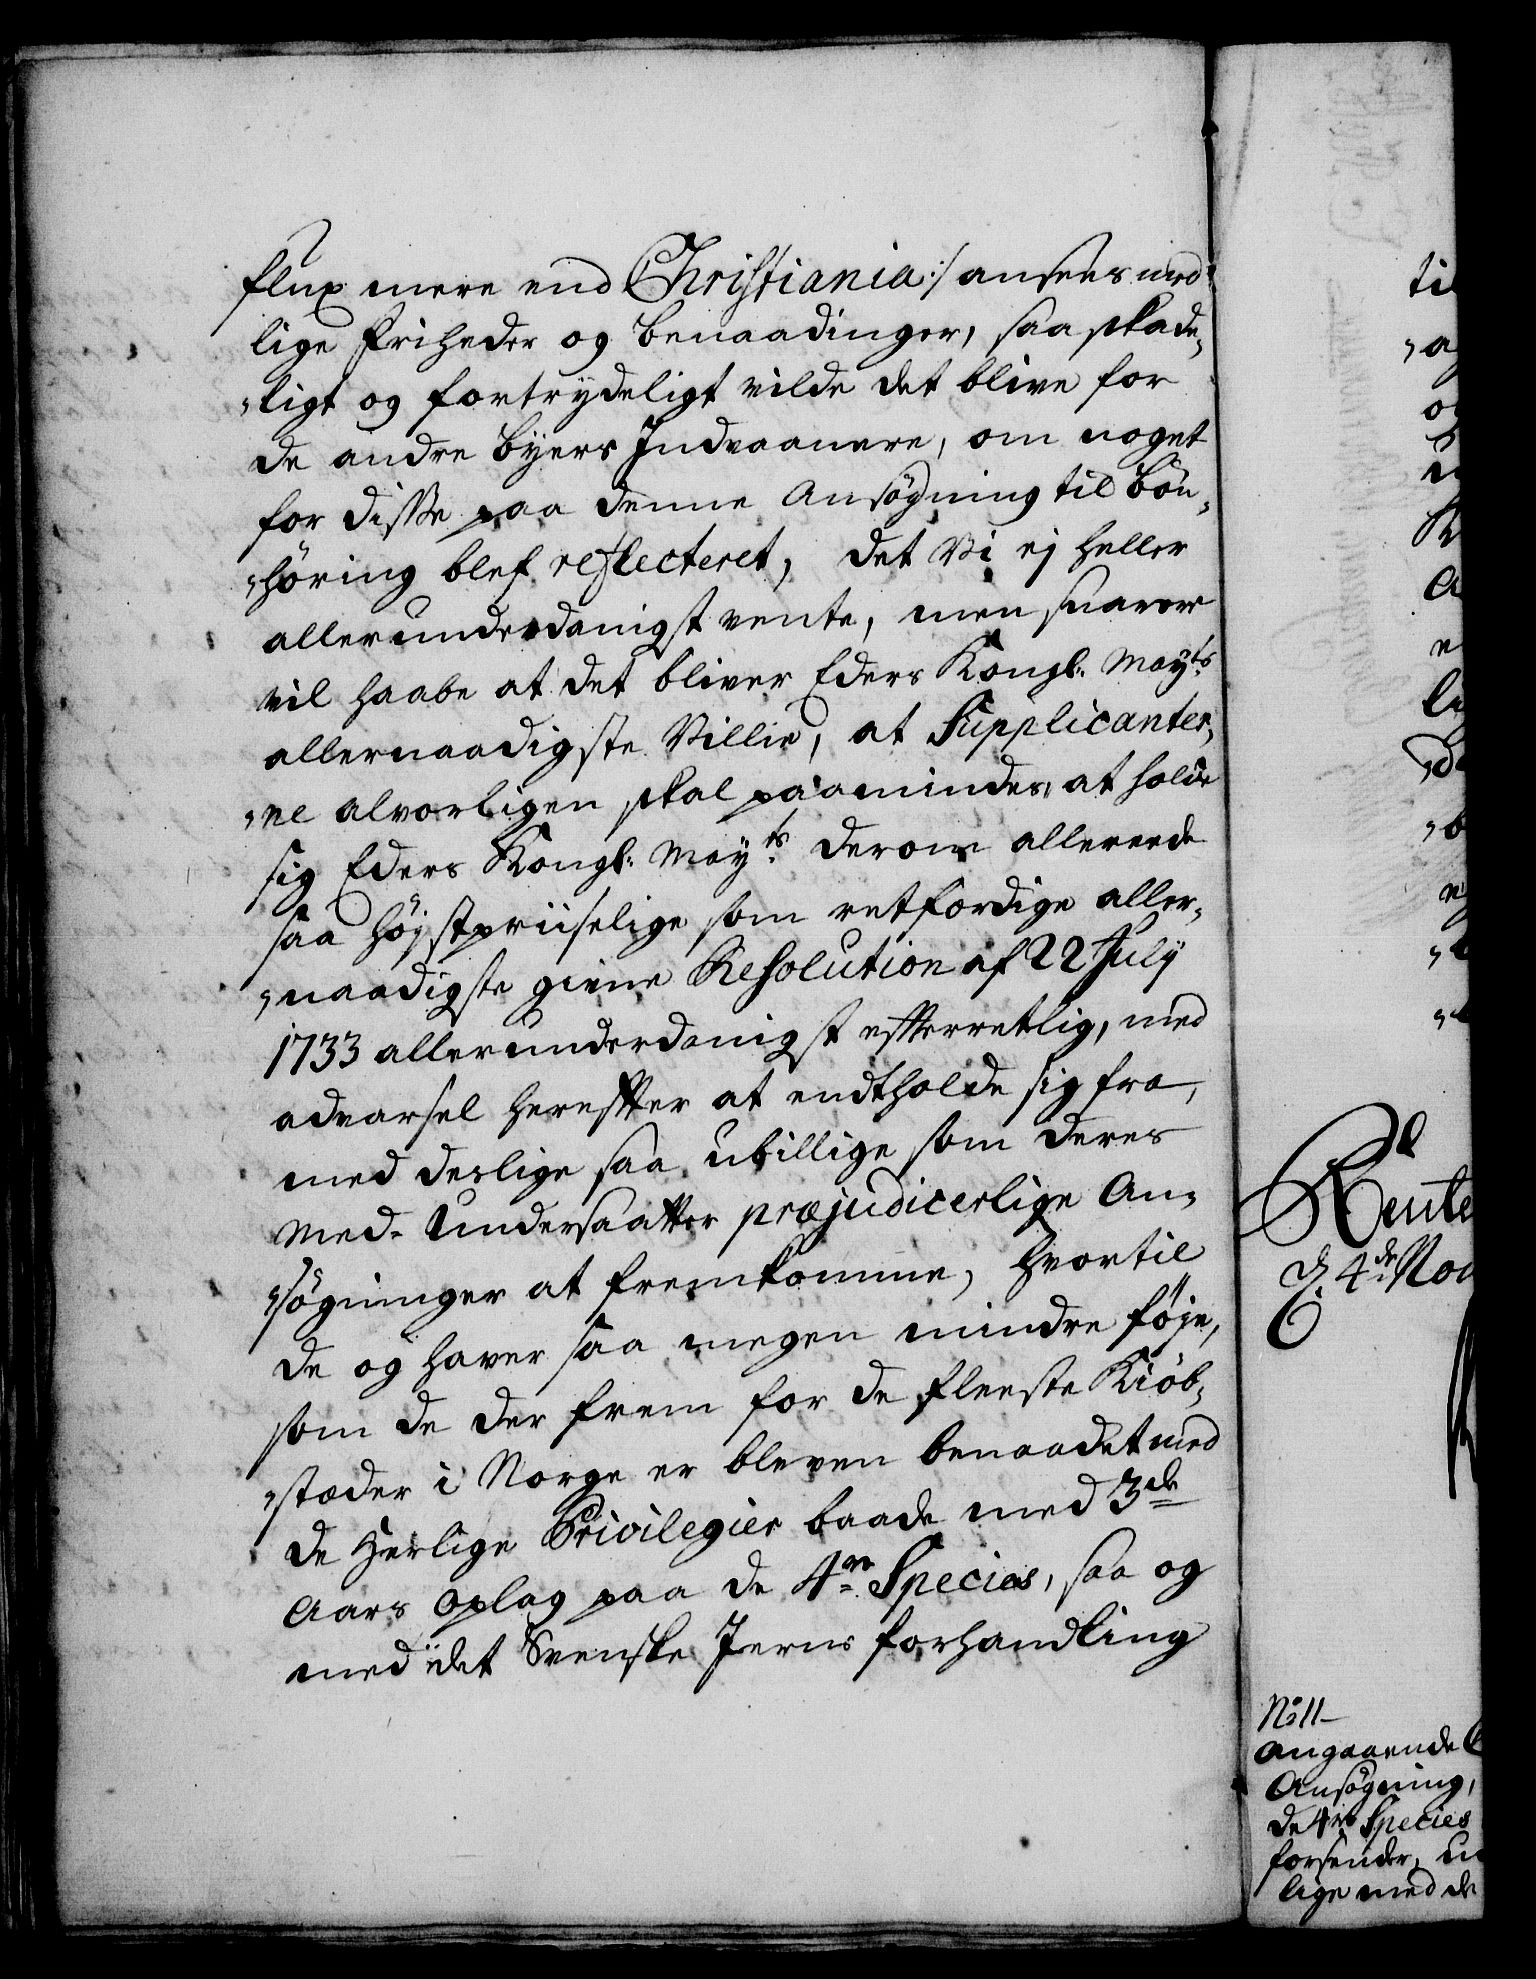 flux mere end Christiania :/ ansees med
lige Friheder og benaadinger, saa skade„
„ligt og fortrydeligt vilde det blive for
de andre byers Indvaanere, om noget
for disse paa denne Ansögning til bön„
„höring blef reflecteret, det Vi ej heller
allerunderdanigst vente, men snarere
vil haabe at det bliver Eders Kongl: Mayts
allernaadigste Villie, at Supplicanter„
„ne alvorligen skal paamindes, at holde
sig Eders Kongl: Mayts derom allereede
saa höjstpriiselige som retfærdige aller„
„naadigste givne Resolution af 22 July
1733 allerunderdanigst efterretlig, med
advarsel herefter at endtholde sig fra,
med deslige saa ubillige som deres
Med-Undersaatter præjudicerlige An„
„sögninger at fremkomme, hvortil
de og haver saa megen mindre föje,
som de der frem for de fleeste Kiöb„
„stæder i Norge er bleven benaadet med
de herlige Privilegier baade med 3de
Aars Oplag paa de 4re Species, saa og
med det Svenske Jerns forhandling
til
Rente
d. 4de Nov
No 11
Angaaende
Ansögning,
de 4re Species
forsender,
lige med de